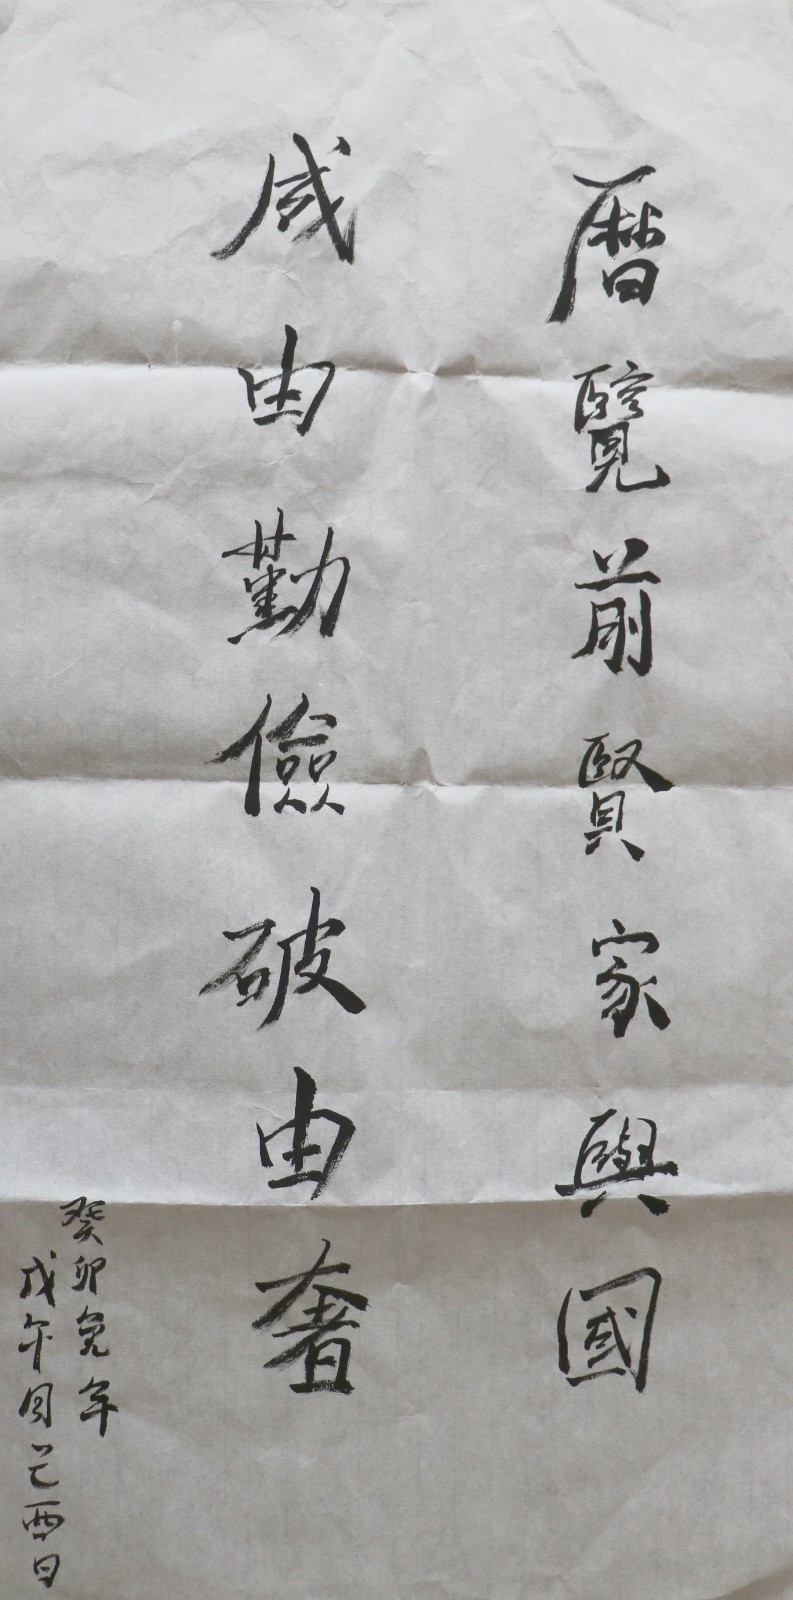 暦覽前賢家與國
成由勤儉破由奢
癸卯兔年
戊午月己酉日